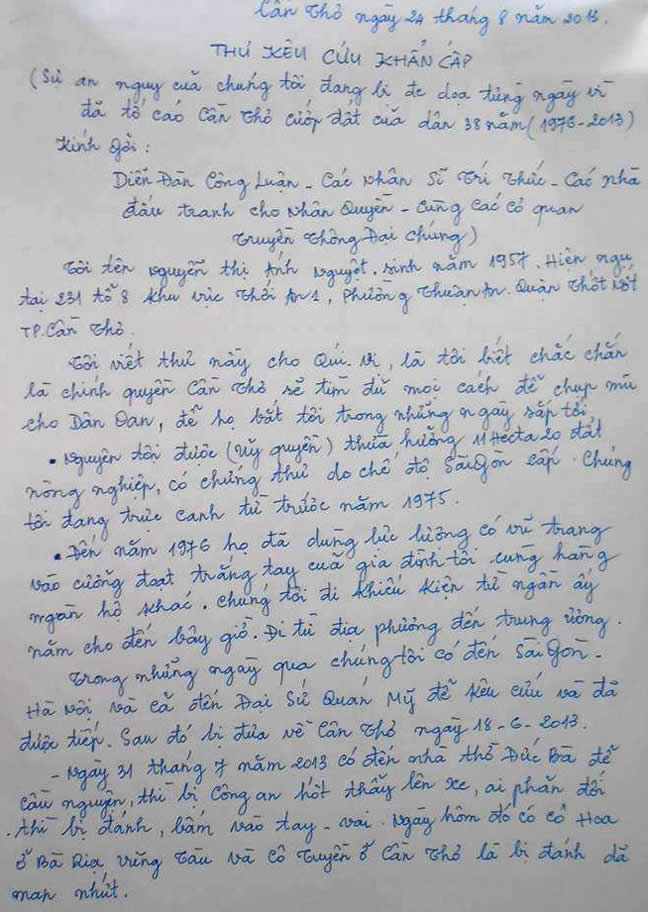 Cần Thơ ngày 24 tháng 8 năm 2013.
THƯ KÊU CỨU KHẨN CẤP
(Sự an nguy của chúng tôi đang bị đe dọa từng ngày vì
đã tố cáo Cần Thơ cướp đất của dân 38 năm (1976-2013)
Kính gởi:
Diễn Đàn Công Luận - Các Nhân Sĩ Trí Thức - Các nhà
đấu tranh cho Nhân Quyền - Cùng các cơ quan
Truyền Thông Đại Chúng)
Tôi tên Nguyễn Thị Ánh Nguyệt. sinh năm 1957. Hiện ngụ
tại 231 tổ 8 khu vực Thới An 1, Phường Thuận An. Quận Thốt Nốt
TP. Cần Thơ.
Tôi viết thư này cho Quí. Vị, là tôi biết chắc chắn
là chính quyền Cần Thơ sẽ tìm đủ mọi cách để chụp mũ
cho Dân Oan, để họ bắt tôi trong những ngày sắp tới.
• Nguyên tôi được (ủy quyền) thừa hưởng 11 Hecta 20 đất
nông nghiệp, có chứng thư do chế độ Sài Gòn cấp. Chúng
tôi đang trực canh từ trước năm 1975.
• Đến năm 1976 họ đã dùng lực lượng có vũ trang
vào cưỡng đoạt trắng tay của gia đình tôi cùng hàng
ngàn hộ khác. chúng tôi đi khiếu kiện từ ngần ấy
năm cho đến bây giờ. Đi từ địa phương đến trung ương.
Trong những ngày qua chúng tôi có đến Sài Gòn -
Hà Nội và cả đến Đại Sứ Quán Mỹ để kêu cứu và đã
được tiếp. Sau đó bị đưa về Cần Thơ ngày 18-6-2013.
- Ngày 31 tháng 7 năm 2013 có đến nhà thờ Đức Bà để
cầu nguyện, thì bị công an hốt thẩy lên xe, ai phản đối
thì bị đánh, bấm vào tay - vai. Ngày hôm đó có cô Hoa
ở Bà Rịa Vũng Tàu và cô Tuyền ở Cần Thơ là bị đánh dã
man nhứt.